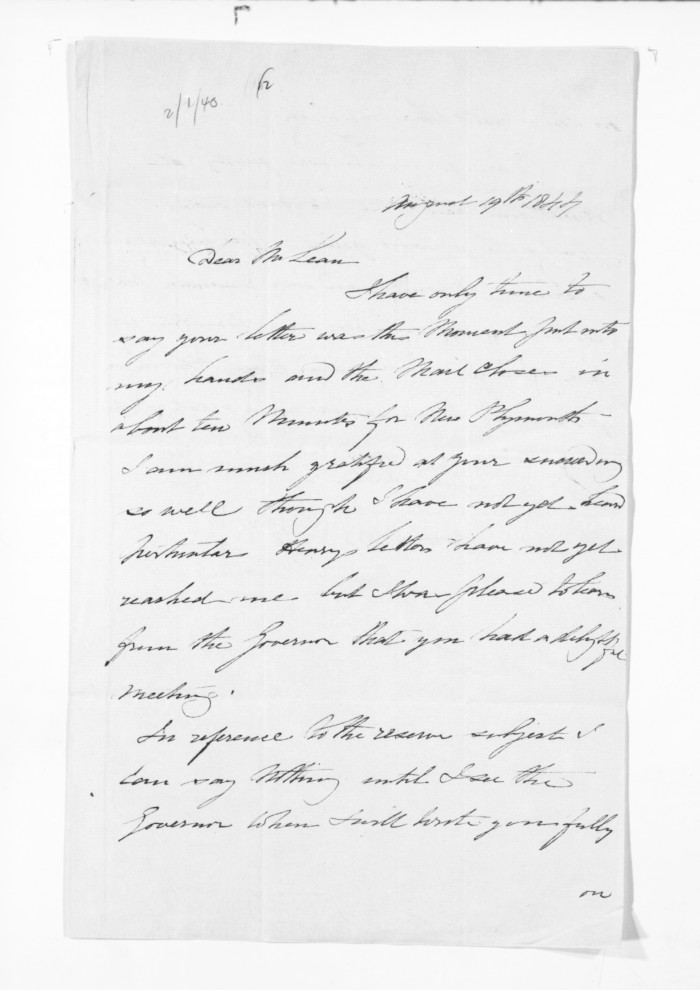 2/1/40
August 19th 1844
Dear McLean
I have only time to
say your letter was this Moment put into
my hands and the Mail Closes in
about ten Minutes for New Plymouth
I am much gratified at your succeeding
so well though I have not yet heard
particulars Henrys letters have not yet
reached me but I was please to learn
from the Governor that you had a delightful
meeting.
In reference to the reserve subject I
can say Nothing until I see the
Governor When I will write you fully
on